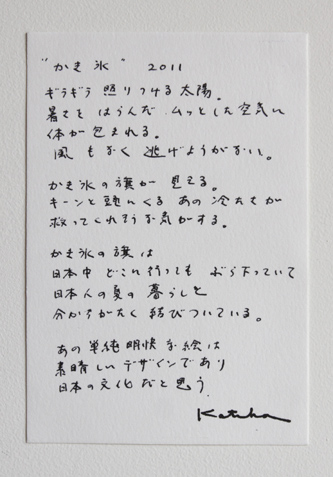 "かき氷" 2011
ギラギラ 照りつける太陽。
暑さを はらんだ ムッとした空気に
体が包まれる。
風もなく 逃げようがない。
かき氷の旗が 見える。
キーンと頭にくる あの冷たさが
救ってくれそうな気がする。
かき氷の旗は
日本中 どこに行っても ぶら下っていて
日本人の夏の 暮らしと
分かちがたく 結びついている。
あの 単純明快な絵は
素晴しいデザインであり
日本の文化だと思う